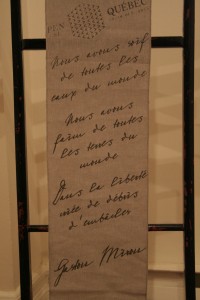 QUÉBEC
Nous avons soif
de toutes les
eaux du monde
Nous avons
faim de toutes
les terres du
monde
Dans la liberté
criée de débris
d'embâcles
Gaston Miron